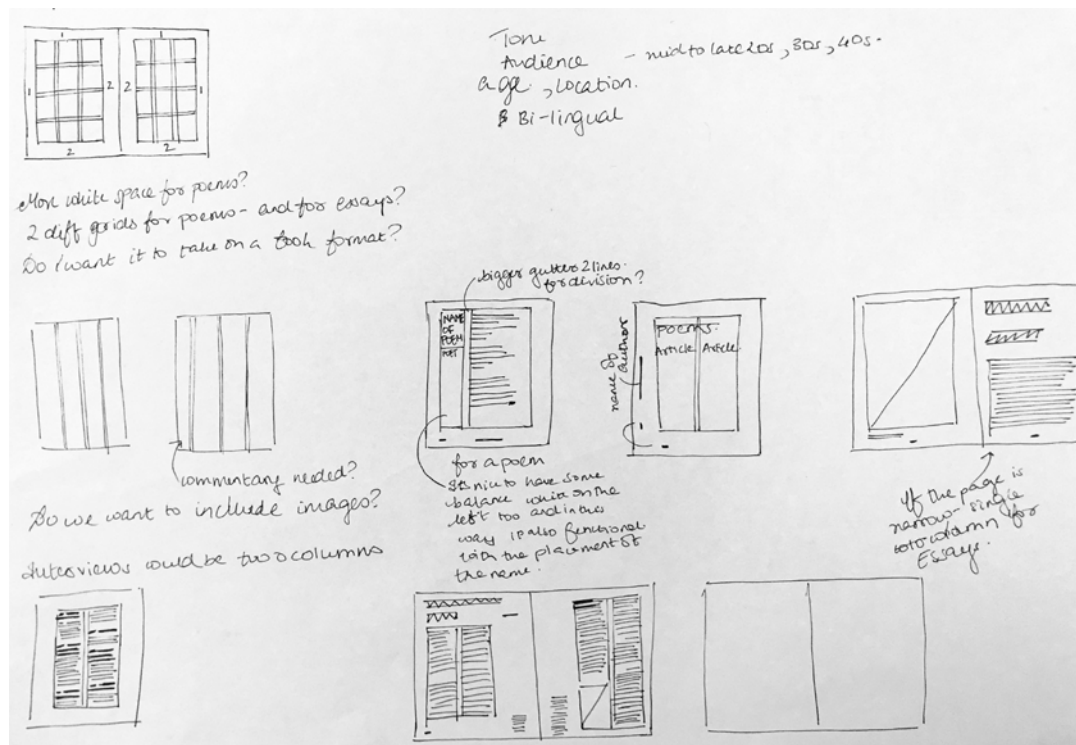 1 1
1 2 2 1
2 2
Tone
Audience - mid to late 20s, 30s, 40s.
age, Location.
Bi-lingual
More white space for poems?
2 diff grids for poems - and for essays?
Do i want it to take on a book format?
bigger gutter 2 lines.
for division?
NAME
OF
POEM
POET
name of
author
poems.
Article Article
commentary needed?
Do we want to include images?
Interviews would be two columns
for a poem
Its nice to have some
balance white on the
left too and in this
way is also functional
with the placement of
the name.
If the page is
narrow - single
column for
Essays.